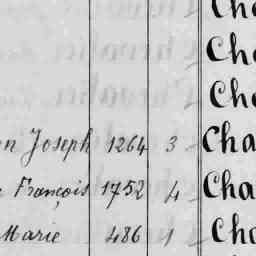 Ch
Ch
Ch
n Joseph 1264 3 Cha
François 1752 4 Cha
Marie 486 1 Cha